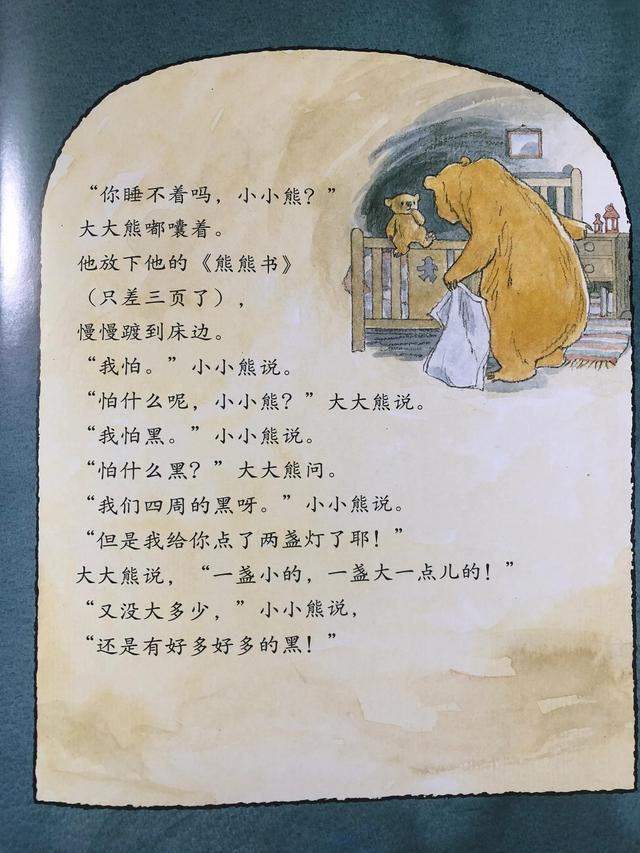 “你睡不着吗，小小熊？”
大大熊嘟囔着。
他放下他的《熊熊书》
（只差三页了），
慢慢踱到床边。
“我怕。”小小熊说。
“怕什么呢，小小熊？”大大熊说。
“我怕黑。”小小熊说。
“怕什么黑？”大大熊问。
“我们四周的黑呀。”小小熊说。
“但是我给你点了两盏灯了耶！”
大大熊说，“一盏小的，一盏大一点儿的！”
“又没大多少，”小小熊说，
“还是有好多好多的黑！”